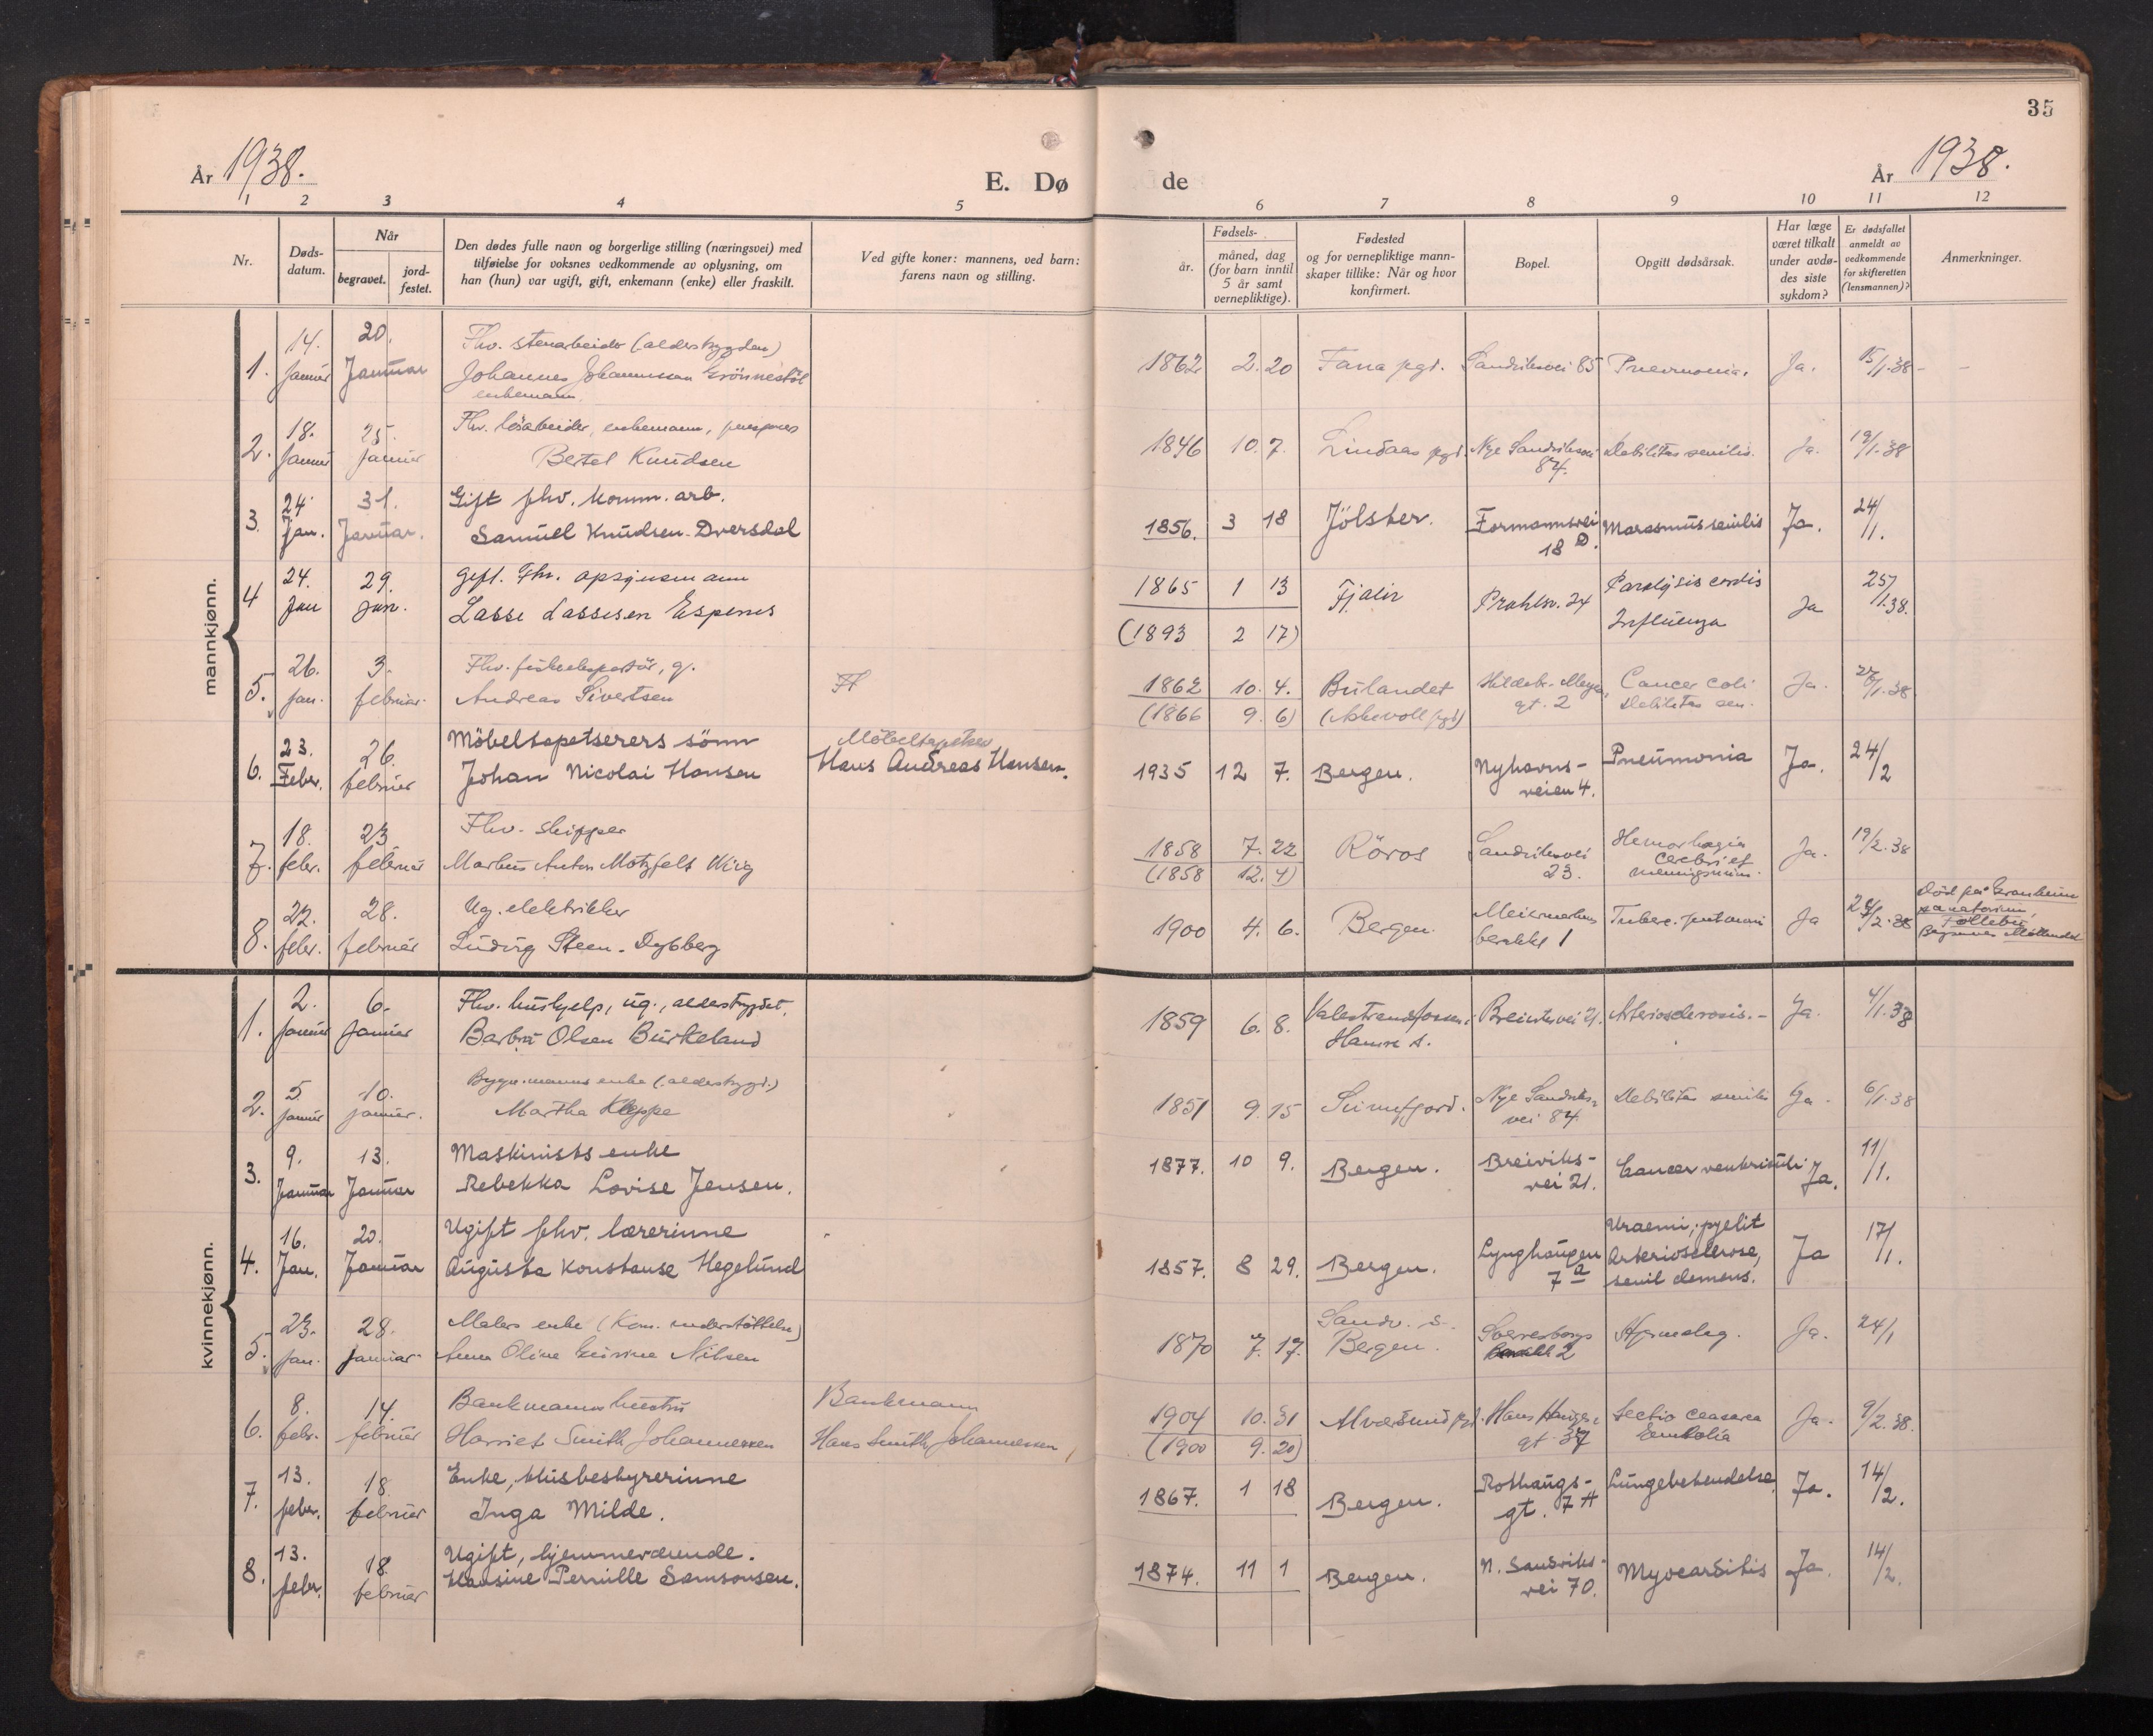 35
År 1938.
E. Dø de
År 1938.
1 2 3 4 5 6 7 8 9 10 11 12
Nr.
Døds-
datum.
Når
begravet.
jord-
festet.
Den dødes fulle navn og borgerlige stilling (næringsvei) med
tilføielse for voksnes vedkommende av oplysning, om
han (hun) var ugift, gift, enkemann (enke) eller fraskilt.
Ved gifte koner: mannens, ved barn:
farens navn og stilling.
Fødsels-
år.
måned, dag
(for barn inntil
5 år samt
vernepliktige).
Fødested
og for vernepliktige mann-
skaper tillike: Når og hvor
konfirmert.
Bopel.
Opgitt dødsårsak.
Har læge
været tilkalt
under avdø-
des siste
sykdom?
Er dødsfallet
anmeldt av
vedkommende
for skifteretten
(lensmannen)?
Anmerkninger.
mannkjønn.
1. 14. Januar 20. Januar
Fhv. stenarbeider (alderstrygden)
Johannes Johannessen Grönnestöl
enkemann
1862 2. 20 Fana pgd. Sandviksvei 85 Pneumonia. Ja. 15/1.38 -
2. 18. Januar 25. Januar
Fhv. løsarbeider, enkemann,
Bertel Knudsen
1846 10. 7. Lindaas pgd. Nye Sandviksvei
84. Debilitas senilis. Ja. 19/1.38
3. 24 Jan. 31. Januar.
Gift fhv. komm. arb.
Samuel Knudsen Dversdal
1856. 3 18 Jölster. Formannsvei
18 D. Marasmus senilis Ja. 24/1.
4 24. Jan 29. jan.
Gift. Fhv. opsynsmann
Lasse Lassesen Espenes
1865 1 13 Fjaler Prahlsv. 24 Paralysis cordis
Influenza Ja 25/1.38.
(1893 2 17)
5. 26. jan. 3. februar.
Fhv. , g.
Andreas Sivertsen
Fh
1862 10. 4. Bulandet Hildebr. Meyers
gt. 2 Cancer coli
Debilitas sen. Ja.
(1866 9. 6) (Askevoll pgd)
6. 23. Feber. 26. februar
Möbeltapetserers sönn
Johan Nicolai Hansen
Möbeltapetser
Hans Andreas Hansen.
1935 12 7. Bergen. Nyhavns-
veien 4. Pneumonia Ja. 24/2
7. 18. febr. 23 februar
Fhv. skipper
Markus Anton Motzfelt Wiig
1858 7. 22 Röros Sandviksvei
23. Hemorhagia
cerebri et
meningsium. Ja. 19/2.38
(1858 12. 4)
8. 22. febr. 28. februar
Ug. elektriker
Ludvig Steen-Dybberg
1900 4. 6. Bergen.
1 Tuberc. pulmon Ja
Död på Granheim
sanatorium,
Follebu
Begraves Møllendal
kvinnekjønn.
1. 2. Januar 6. Januar
Fhv. hushjelp, ug., alderstrygdet.
Barbra Olsen Birkeland
1859 6. 8. Valestrandsfossen
Hamre s. Breiviksvei 21. Arteriosclerosis. - Ja. 4/1.38
2. 5. Januar 10. januar.
enke (alderstrygd.)
Martha Kleppe
1851 9. 15 Sunnfjord. Nye Sandviks-
vei 84. Debilitas senilis Ja. 6/1.38
3. 9. Januar 13. Januar
Maskinists enke
Rebekka Lovise Jensen.
1877. 10 9. Bergen. Breiviks-
vei 21. Cancer ventriculi Ja. 11/1.
4. 16. Jan. 20. Januar
Ugift fhv. lærerinne
Augusta Konstanse Hegelund
1857. 8 29. Bergen. Lynghaugen
7 a Uraemi, pyelit
Arteriosclerose,
senil demens. Ja 17/1.
5. 23. jan. 28. januar.
Malers enke (Kom. understöttelse)
Anna Oline Nilsen
1870 7. 17. Sandv. s.
Bergen. Sverresborgs
2 Hjerneslag. Ja. 24/1
6. 8. febr. 14. februar
Bankmanns hustru
Harriet Smith Johannessen
Bankmann
Hans Smith Johannessen
1904 10. 31 Alversund pgd. Hans Hauges
gt. 37 Sectio ceasarea
Embolia Ja. 9/2.38.
(1900 9. 20)
7. 13. feber. 18. februar
Enke, husbestyrerinne
Inga Milde.
1867. 1 18 Bergen. Rothaugs-
gt. 7 Lungebetendelse Ja. 14/2.
8. 13. feber. 18. februar
Ugift, hjemmeværende.
Hansine Pernille Samsonsen.
1874. 11 1 Bergen. N. Sandviks-
vei 70. Myocarditis Ja. 14/2.